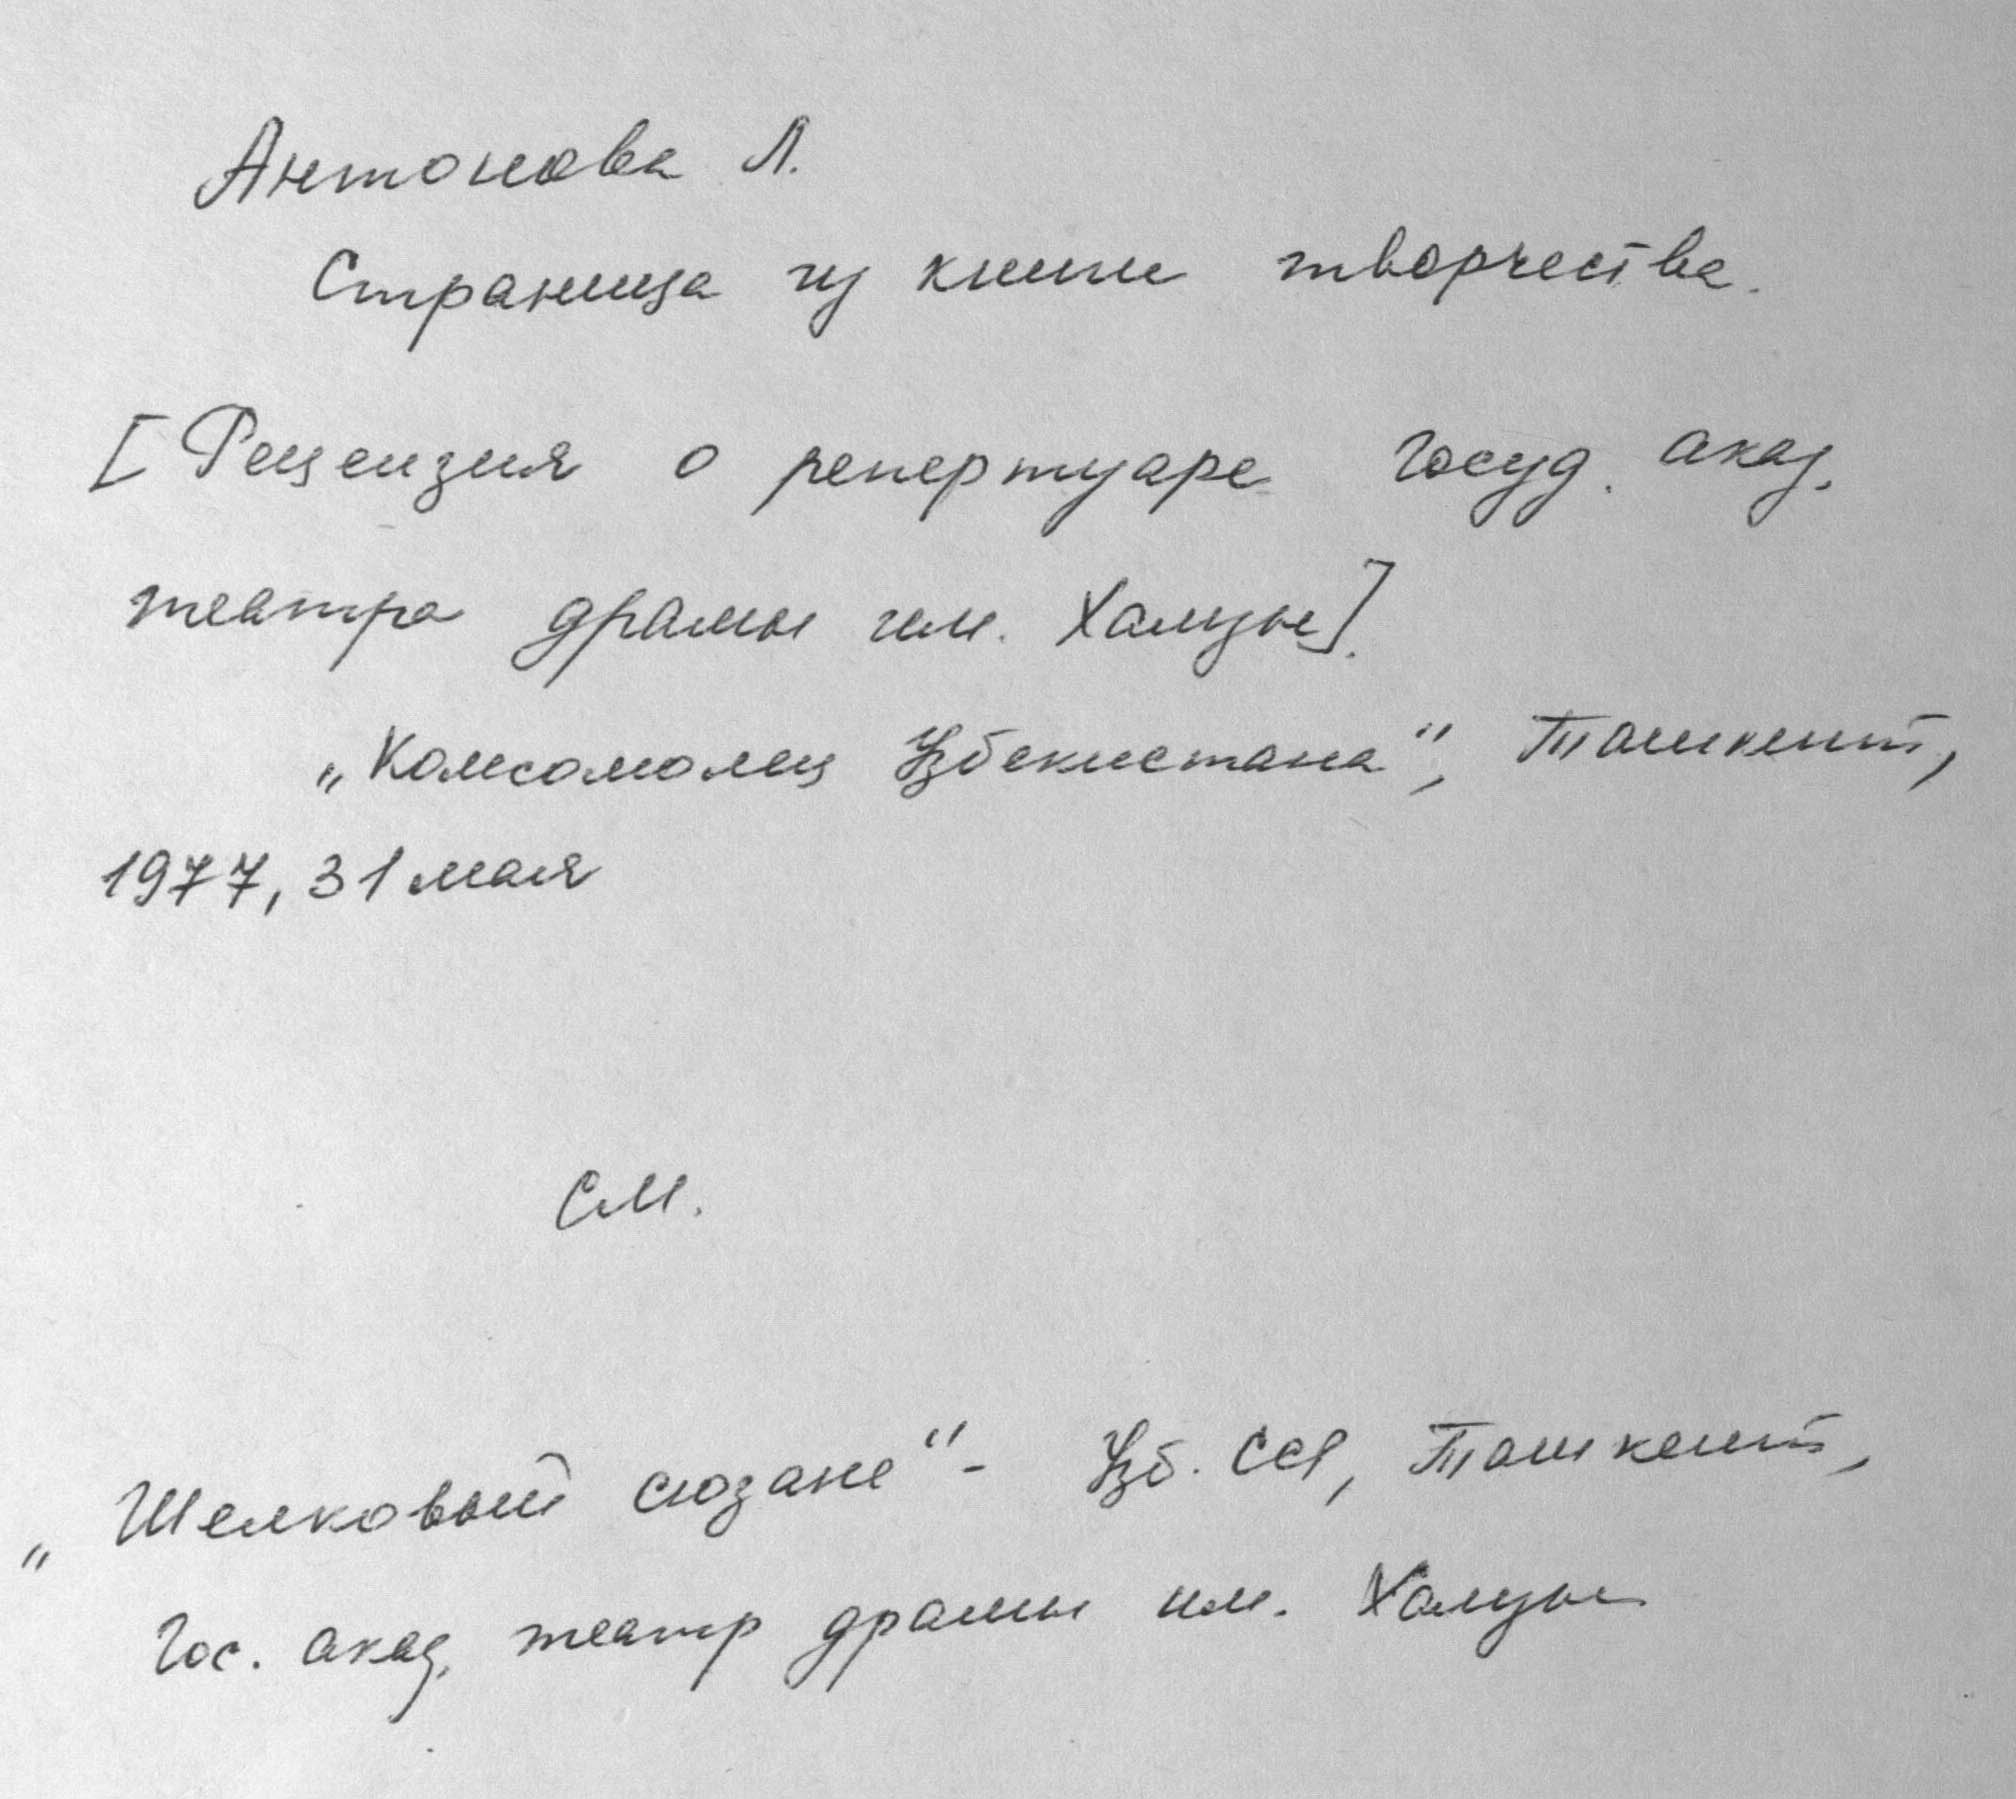 Антонова Л.
Страница из книги творчества.
[Рецензия о репертуаре госуд. акад.
театра драмы им. Хамзы].
„Комсомолец Узбекистана“, Ташкент,
1977, 31 мая
См.
„Шелковый сюзане“ - Узб. ССР, Ташкент,
Гос. акад. театр драмы им. Хамзы